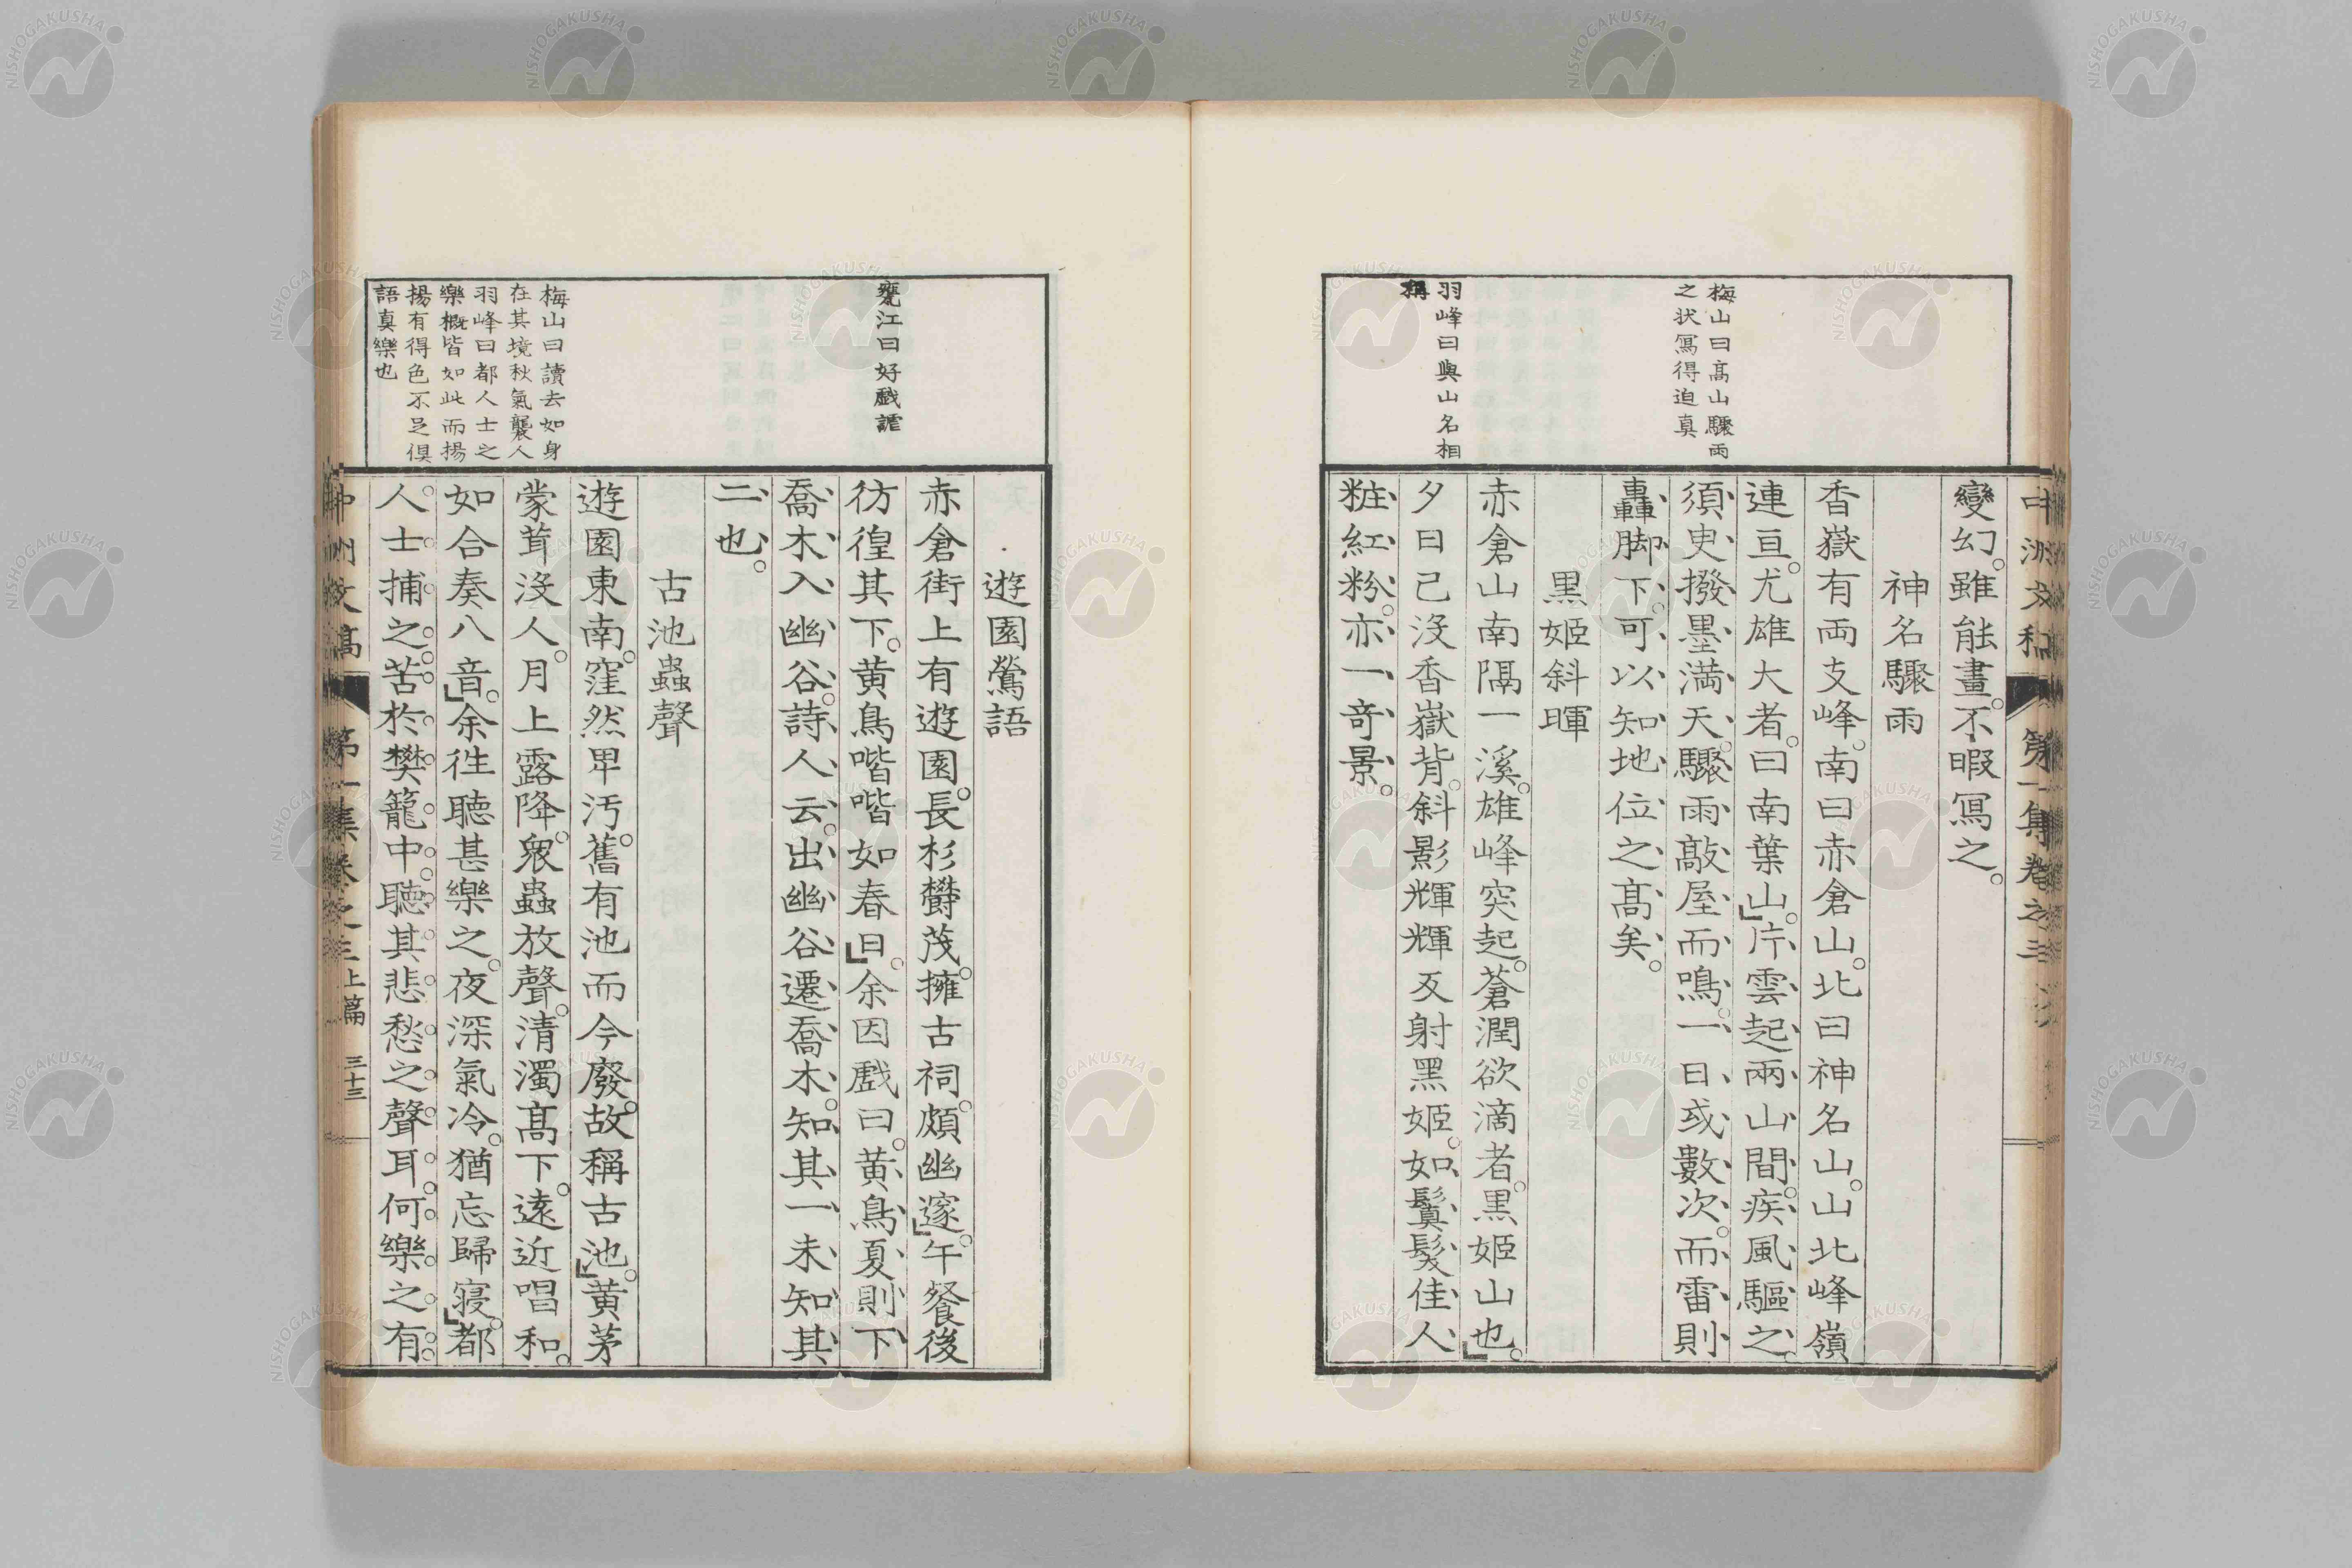 梅山曰高山驟雨
之状寫得迫真
羽峰曰與山名相
稱
變幻。雖能畫。不暇寫之。
神名驟雨
香嶽有両支峰。南曰赤倉山。北曰神名山。山北峰嶺
連亘。尤雄大者。曰南葉山。片雲起兩山間。疾風驅之。
須臾撥墨満天。驟雨敲屋而鳴。一日或數次。而雷則
轟脚下。可以知地位之髙矣。
黒姫斜暉
赤倉山南隔一溪。雄峰突起。蒼潤欲滴者。黒姫山也。
夕日已没香嶽背。斜影輝輝反射黒姫。如鬒髮佳人
粧紅粉。亦一竒景。
甕江曰好戲謔
梅山曰讀去如身
在其境秋氣襲人
羽峰曰都人士之
樂概皆如此而揚
揚有得色不足倶
語真樂也
遊園鶯語
赤倉街上有遊園。長杉欝茂。擁古祠。頗幽邃。午餐後
彷徨其下。黄鳥喈喈如春日。余因戲曰。黄鳥夏則下
喬木入幽谷。詩人云。出幽谷遷喬木。知其一未知其
二也。
古池蟲聲
遊園東南。窪然卑汚。舊有池而今廢。故稱古池。黄茅
蒙茸没人。月上露降。衆蟲放聲。清濁髙下。遠近唱和。
如合奏八音。余徃聴甚樂之。夜深氣冷。猶忘歸寝。都
人士捕之。苦於樊籠中。聴其悲愁之聲耳。何樂之有。
中洲文稿 第一集卷之三上篇 三十三